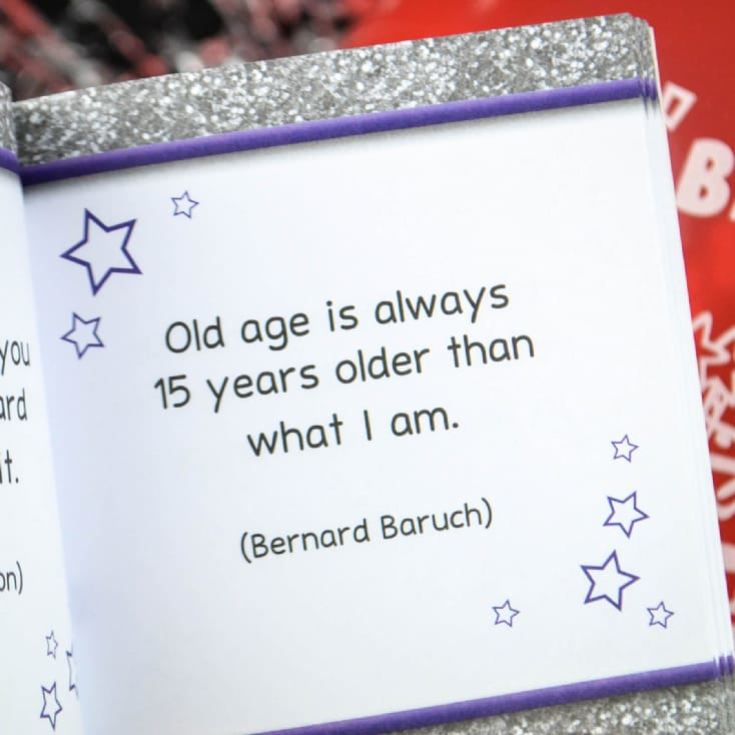 Old age is always
15 years older than
what I am.
(Bernard Baruch)
you
it.
B